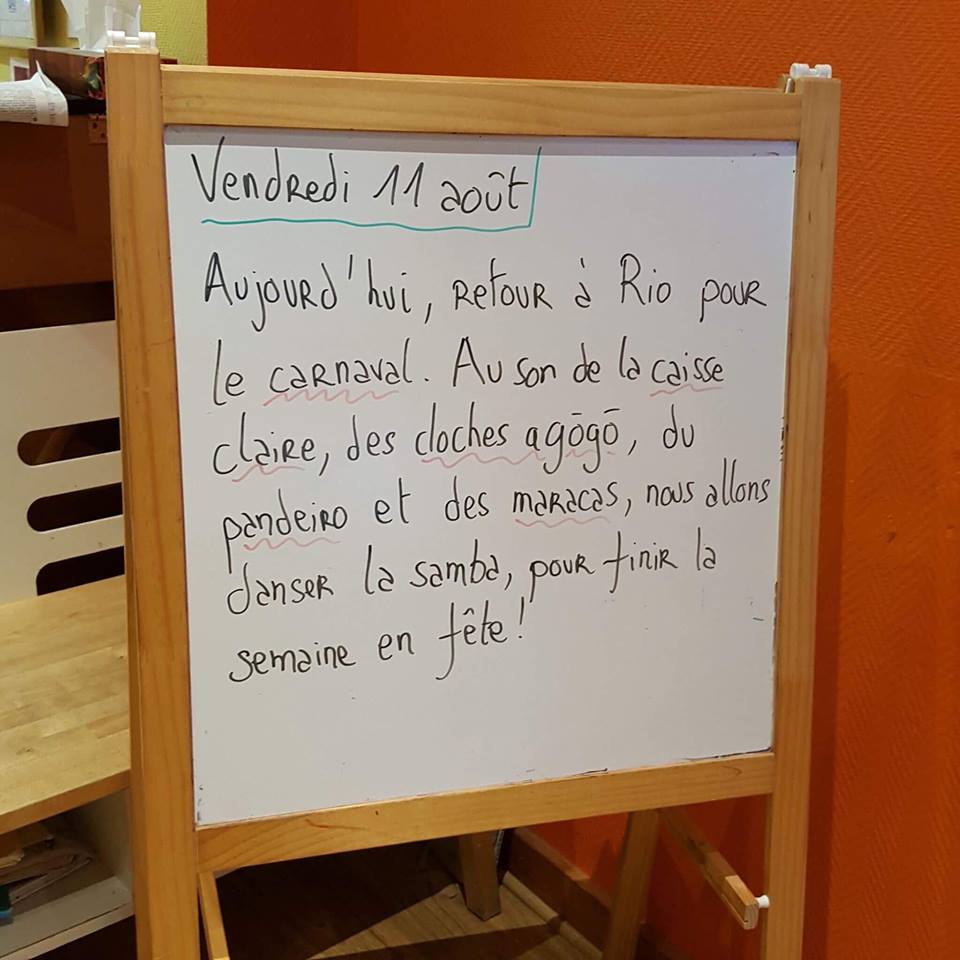 Vendredi 11 août
Aujourd'hui, retour à Rio pour
le carnaval. Au son de la caisse
claire, des cloches agōgō, du
pandeiro et des maracas, nous allons
danser la samba, pour finir la
semaine en fête!